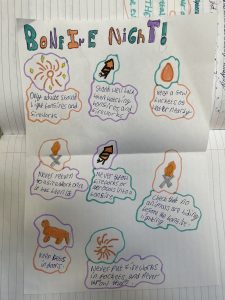 BONFIRE NIGHT!
Only adults should
light bonfires and
fireworks
Stand well back
when watching
bonfires and
fireworks
Keep a few
buckets of
water nearby
Never return
to a firework once
it has been lit
Never
fireworks or
aerosols into a
bonfire
Check that no
animals are hiding
before the bonfire
lighting
Keep pets
indoors
Never put fireworks
in pockets and never
throw them